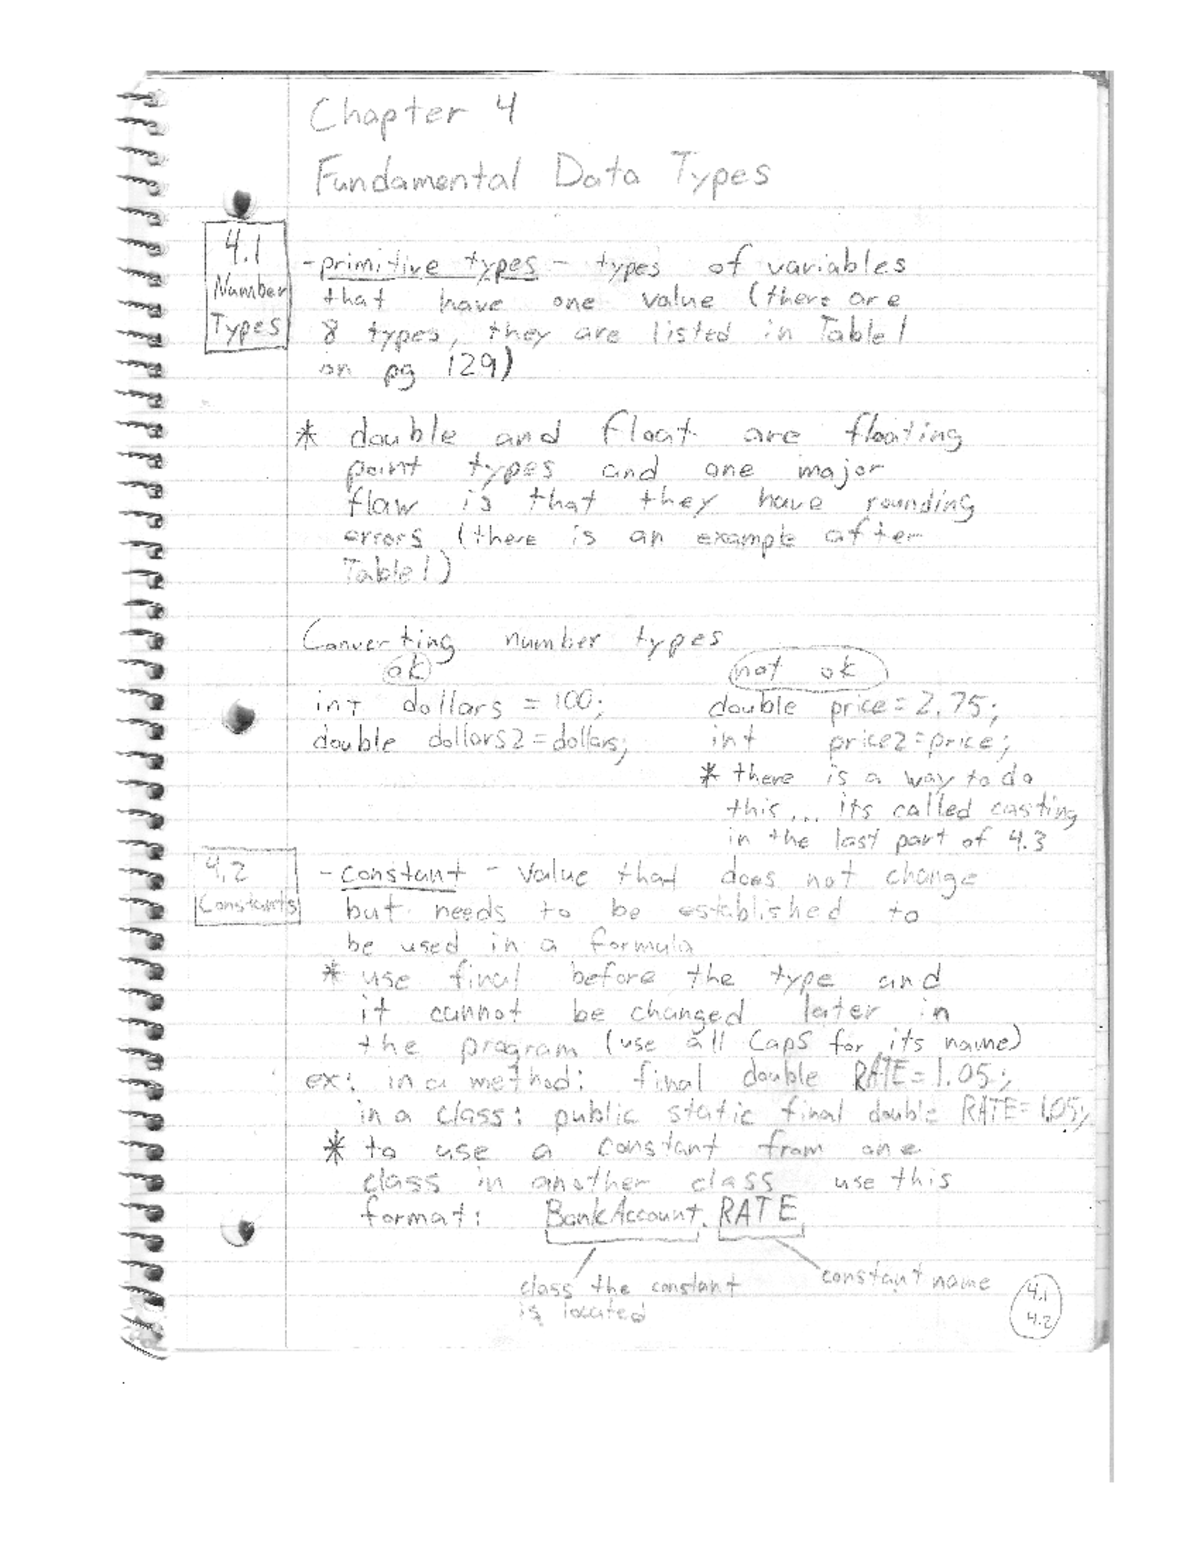 Chapter 4
Fundamental Data Types
4.1
Number
Types
- primitive types - types of variables
that have one value (there are
8 types, they are listed in Table 1
on pg 129)
* double and float are floating
point types and one major
flaw is that they have rounding
errors (there is an example after
Table 1)
Converting number types
ok
int dollars = 100;
double dollars2 = dollars;
not ok
double price = 2.75;
int price2 = price;
* there is a way to do
this... its called casting
in the last part of 4.3
4.2
Constants
- constant - value that does not change
but needs to be established to
be used in a formula
* use final before the type and
it cannot be changed later in
the program (use all Caps for its name)
ex: in a method: final double RATE = 1.05;
in a class: public static final double RATE = 1.05;
* to use a constant from one
class in another class use this
format: BankAccount.RATE
class the constant
is located
constant name
4.1
4.2